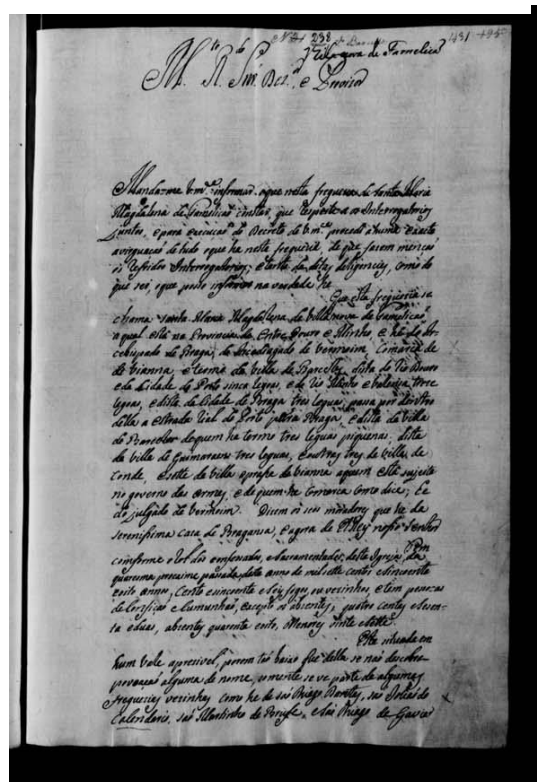 N.º 238
481 - 485
Villa nova de Famelicaõ
M.to R.do Snr. Dez.or e Provizor
Mandame v.m.ce informar oque nesta freguezia de Santa Maria
Magdalena de Famelicaõ consta, que respeite a os Interrogatorios
juntos, e para execuçaõ do Decreto de v.m.ce procedi a huma exacta
averiguaçaõ de tudo oque ha nesta freguezia de que fazem mençaõ
os refridos Interrogatorios; e feitas as ditas deligencias, como do
que sei, o que posso informar na verdade he
Que esta freguezia se
chama Santa Maria Magdalena de Villa nova de Famelicaõ
a qual está na Provincia de Entre Douro e Minho, e he do Ar-
cebispado de Braga, do Arcediagado de Vermoim, Comarca de
de Vianna, e termo da villa de Barcellos, dista do Rio Douro
e da Cidade do Porto sinco legoas, e do Rio Minho e Valença treze
legoas, e dista da Cidade de Braga tres legoas, passa por dentro
della a estrada Rial do Porto para Braga, e dista da villa
de Barcelos de quem he termo tres leguas piquenas, dista
da villa de Guimaraens tres leguas, e outras tres da villa de
Conde, e sette da villa e praça de Vianna aquem está sujeita
no governo das armas, e de quem he Comarca como dice; he
do julgado de Vermoim. Dizem os seos moradores que he da
serenissima caza de Bragansa, e agora de ElRey nosso Senhor
Tem
conforme o rol dos confessados, e sacramentados desta Igreja, da
quaresma proxima passada deste anno de mil sette centos e sincoenta
e oito annos, cento e sincoenta e seis fogos, ou vezinhos, e tem pessoas
de confissaõ e comunhaõ, excepto os abzentes, quatro centas e sesen-
ta e duas, abzentes quarenta e oito, menores vinte e sette
Está situada em
hum vale aprezivel, porem taõ baixo que della se naõ descobre
povoaçaõ alguma de nome, somente se ve parte de algumas
freguezias vezinhas como he de saõ Thiago de Antas, saõ Juliaõ do
Calendario, saõ Martinho de Brufe, e saõ Thiago de Gaviaõ